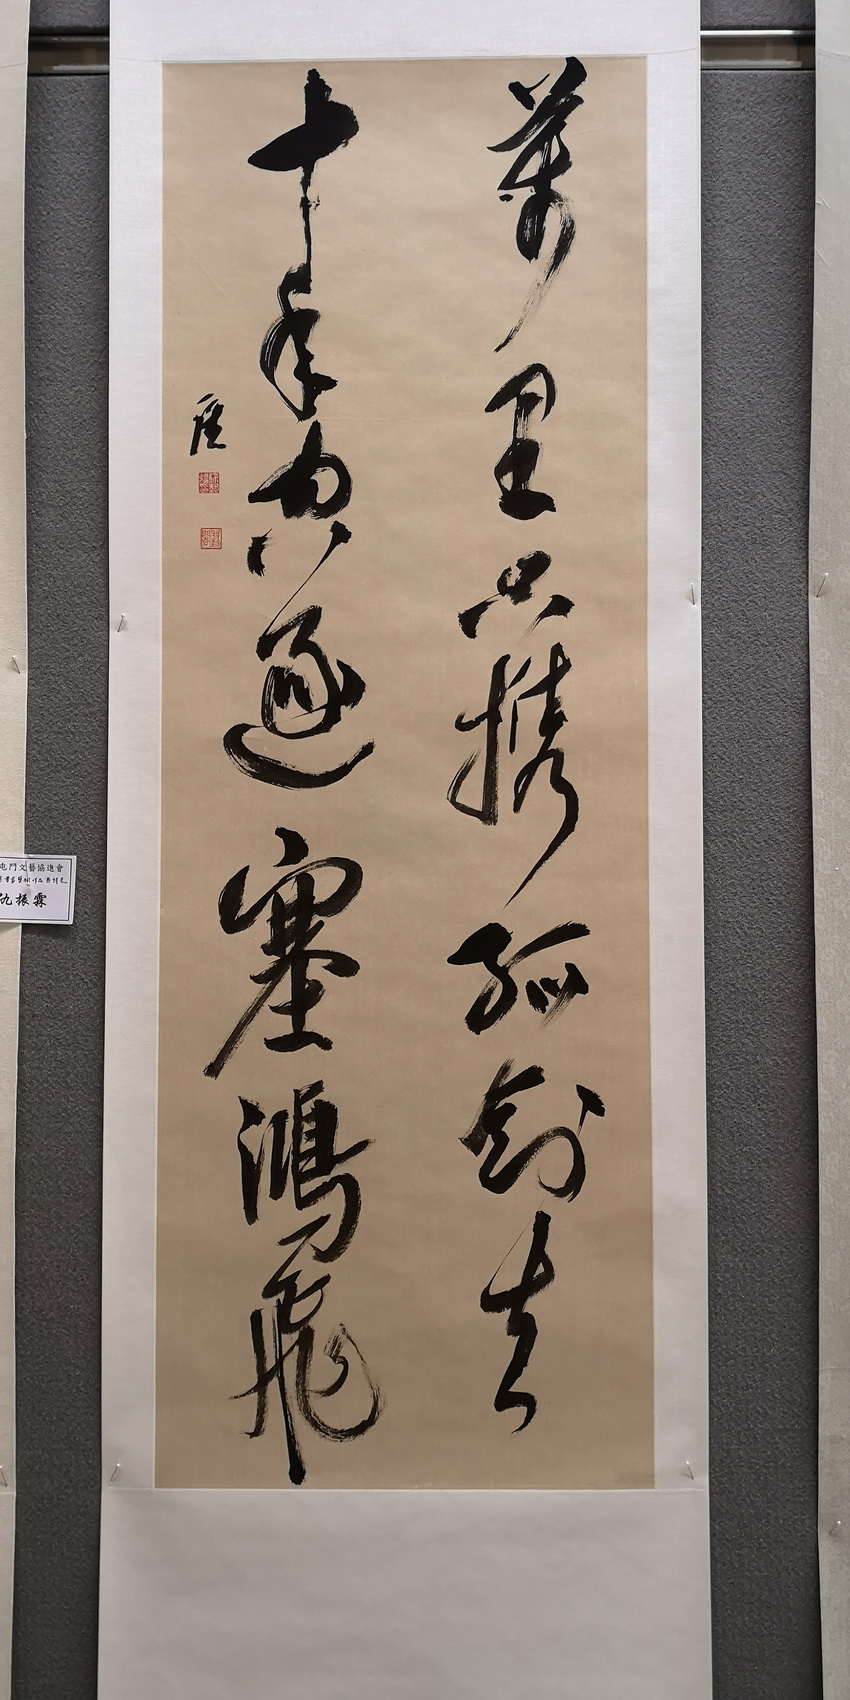 萬里只攜孤劍去
十年空逐塞鴻飛
屯門文藝協進會
仇振霖